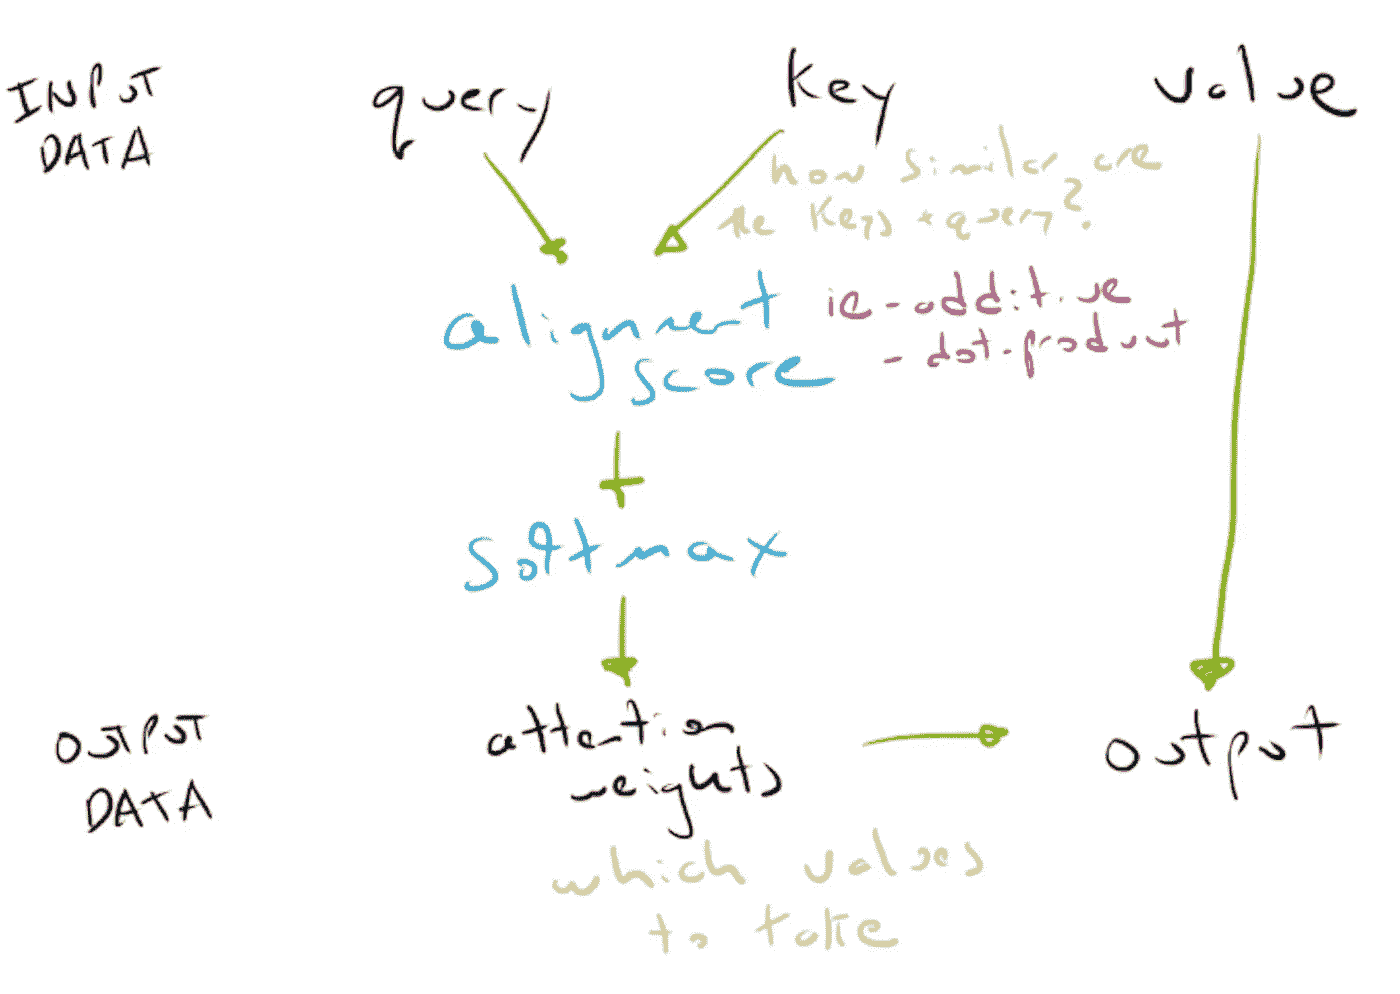 INPUT DATA
query
key
value
how similar are
the keys + query?
alignment
score
ie - additive
- dot-product
softmax
OUTPUT
DATA
attention
weights
output
which values
to take